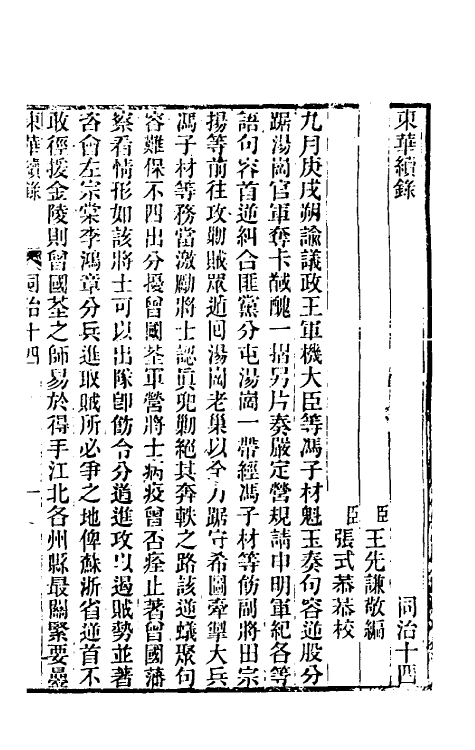 東華續錄　同治十四
臣王先謙敬編
臣張式恭恭校
九月庚戌朔諭議政王軍機大臣等馮子材魁玉奏句容逆股分
踞湯崗官軍奪卡馘醜一摺另片奏嚴定營規請申明軍紀各等
語句容首逆糾合匪黨分屯湯崗一帶經馮子材等飭副將田宗
揚等前往攻勦賊眾遁回湯崗老巢以全力踞守希圖牽掣大兵
馮子材等務當激勵將士認真兜勦絕其奔軼之路該逆蟻聚句
容難保不四出分擾曾國荃軍營將士病疫曾否痊止著曾國藩
察看情形如該將士可以出隊卽飭令分道進攻以遏賊勢並著
咨會左宗棠李鴻章分兵進取賊所必爭之地俾蘇浙省逆首不
敢徑援金陵則曾國荃之師易於得手江北各州縣最關緊要疊
東華續錄　同治十四　一